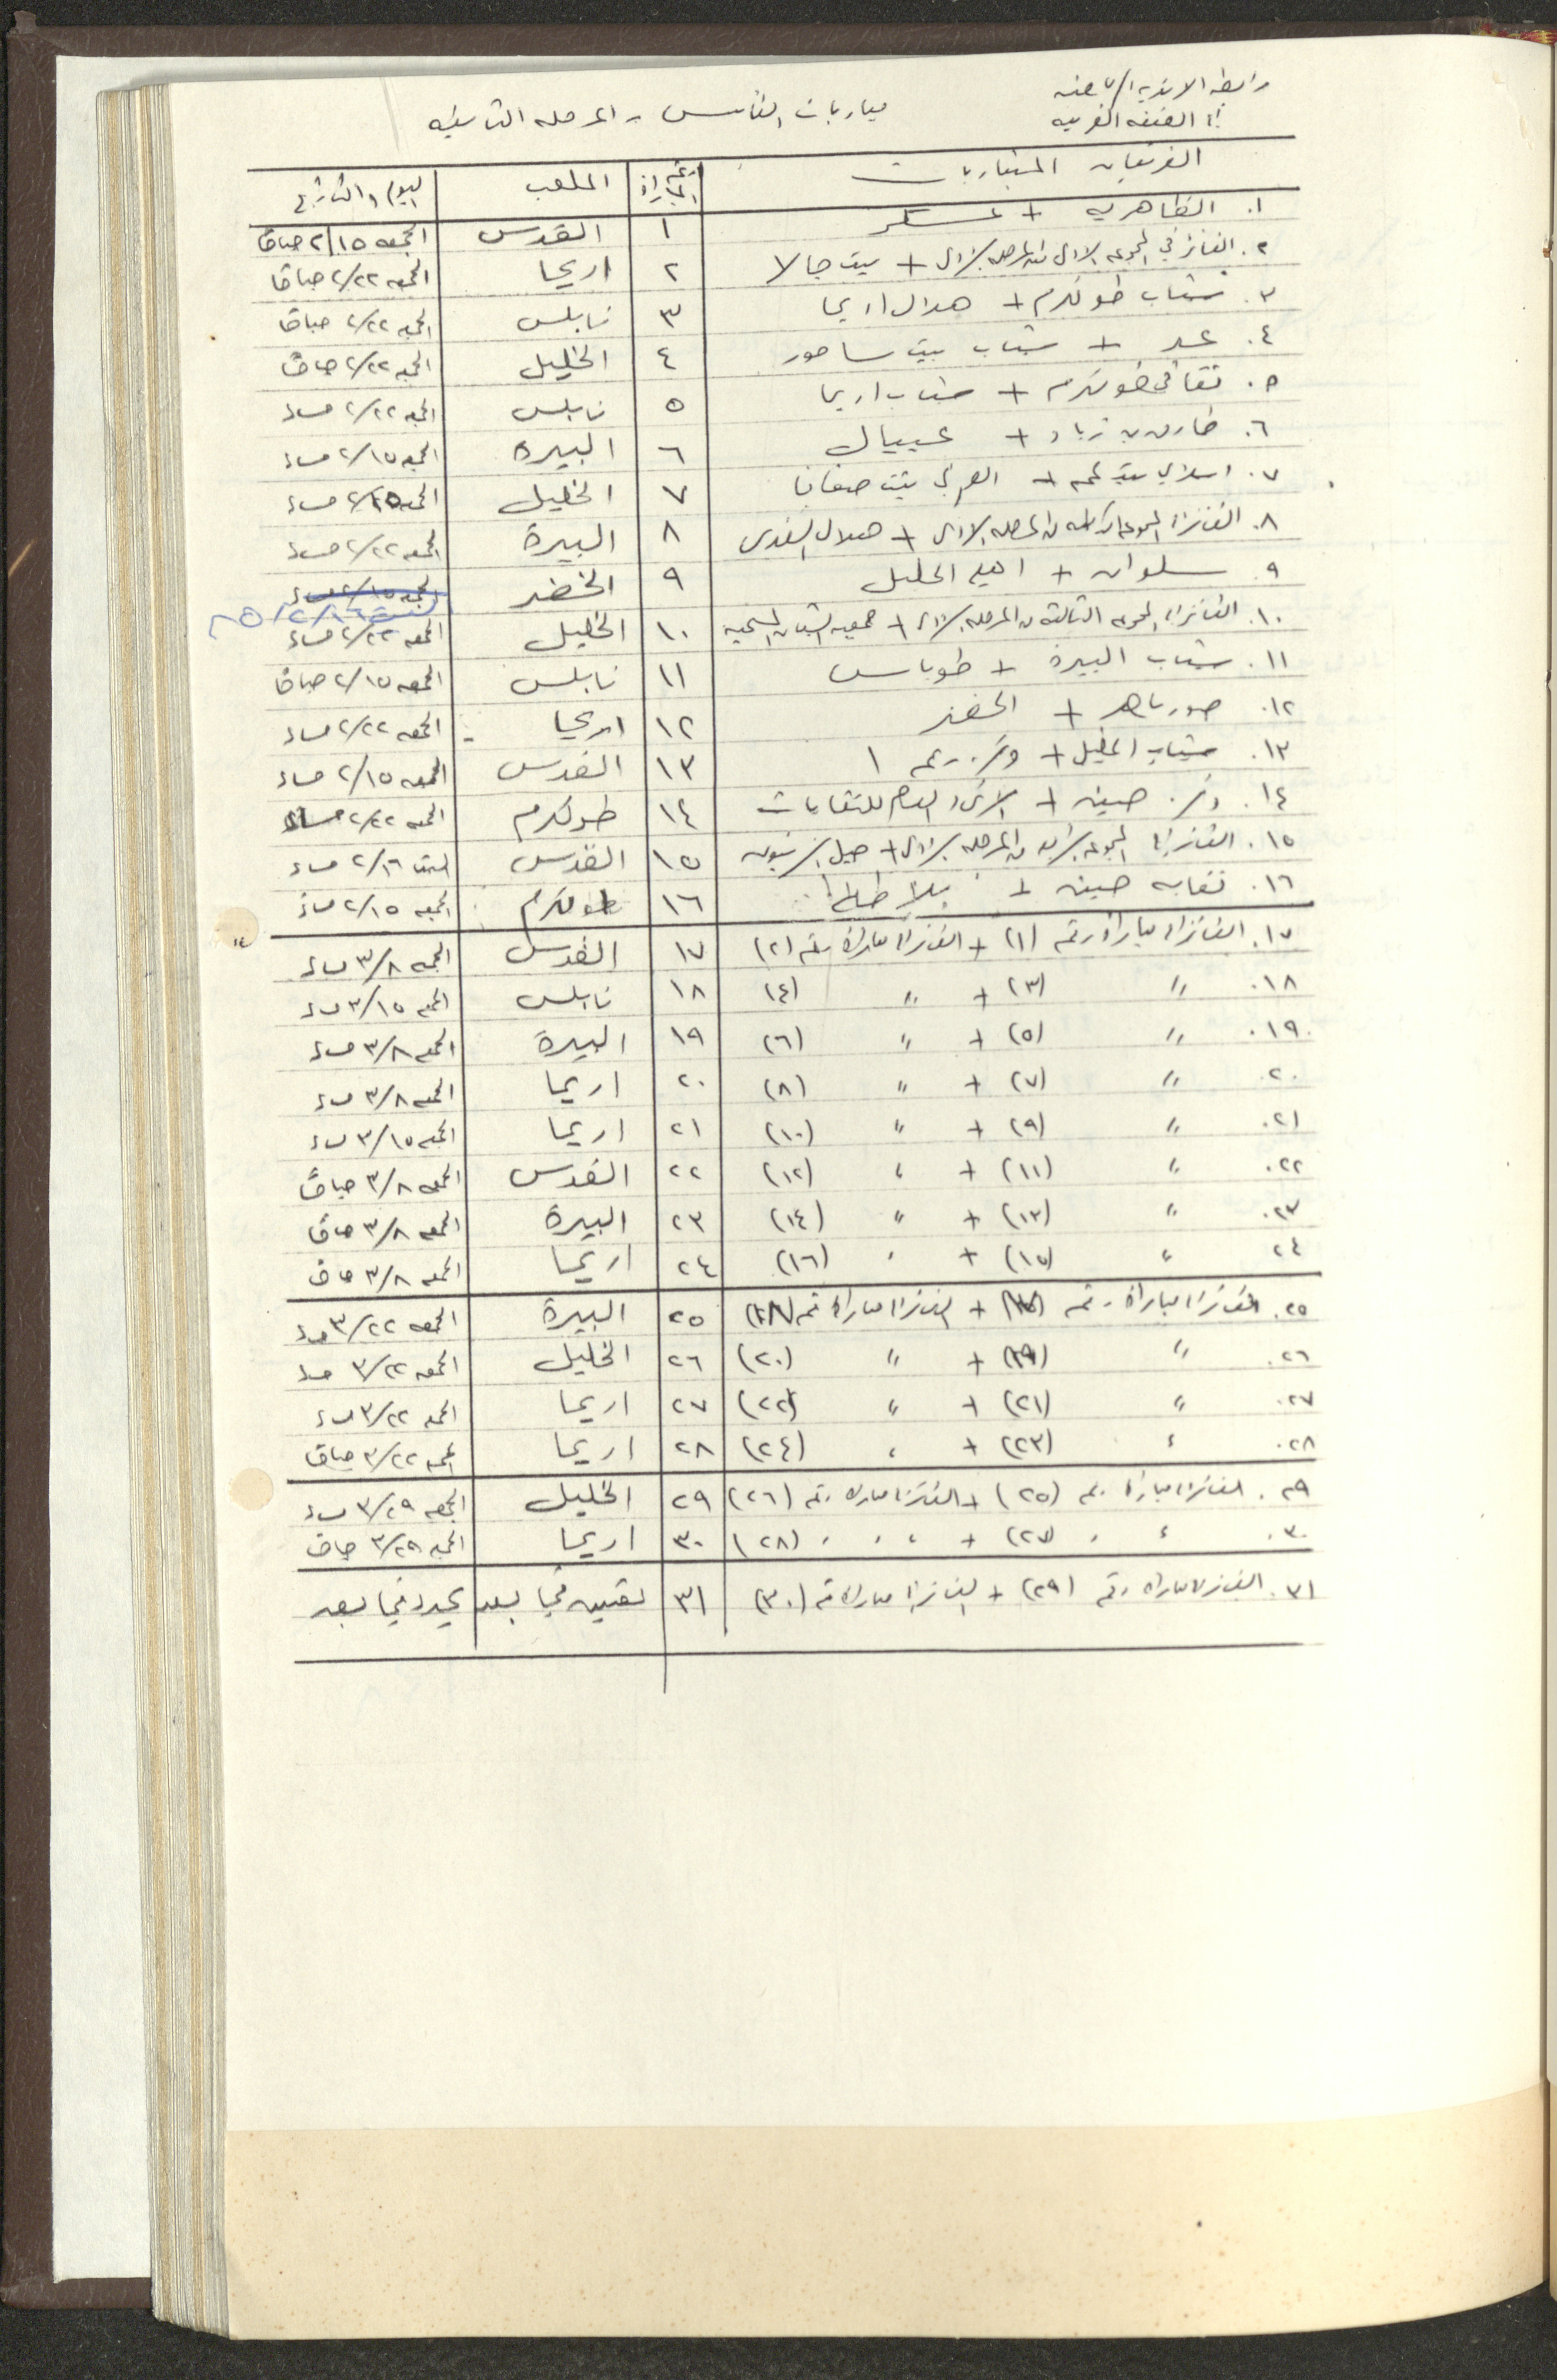 رابطة الاندية الرياضية
في الضفة الغربية
مباريات الكأس - المرحلة الثانية
الفريقان المتباريان | رقم المباراة | الملعب | اليوم والتاريخ
١. الظاهرية + عسكر | ١ | القدس | الجمعه ٢/١٥ صباحًا
٢. الفائز في المجموعه الاولى من المرحلة الاولى + بيت جالا | ٢ | اريحا | الجمعه ٢/٢٢ صباحًا
٣. شباب طولكرم + هلال اريحا | ٣ | نابلس | الجمعه ٢/٢٢ صباحًا
٤. + شباب بيت ساحور | ٤ | الخليل | الجمعه ٢/٢٢ صباحًا
٥. ثقافي طولكرم + شباب اريحا | ٥ | نابلس | الجمعه ٢/٢٢ مساء
٦. طارق بن زياد + عيبال | ٦ | البيرة | الجمعه ٢/١٥ مساء
٧. اسلامي بيت لحم + العربي بيت صفافا | ٧ | الخليل | الجمعه ٢/١٥ مساء
٨. الفائز في المجموعة الثانية من المرحلة الاولى + هلال القدس | ٨ | البيرة | الجمعه ٢/٢٢ مساء
٩. سلوان + اهلي الخليل | ٩ | الخضر | الجمعه ٢/١٥ مساء
السبت ٨٥/٢/١٦
١٠. الفائز في المجموعه الثالثة من المرحلة الاولى + جمعية الشبان المسيحية | ١٠ | الخليل | الجمعه ٢/٢٢ مساء
١١. شباب البيرة + طوباس | ١١ | نابلس | الجمعه ٢/١٥ صباحًا
١٢. صور باهر + الخضر | ١٢ | اريحا | الجمعه ٢/٢٢ مساء
١٣. شباب الخليل + مركز رقم ١ | ١٣ | القدس | الجمعه ٢/١٥ مساء
١٤. مركز جنين + الاتحاد العام للنقابات | ١٤ | طولكرم | الجمعه ٢/٢٢ مساء
١٥. الفائز في المجموعة الرابعة من المرحلة الاولى + جبل الزيتون | ١٥ | القدس | السبت ٢/١٦ مساء
١٦. نقابه جنين + بلاطة | ١٦ | طولكرم | الجمعه ٢/١٥ مساء
١٧. الفائز في مباراة رقم (١) + الفائز في مباراة رقم (٢) | ١٧ | القدس | الجمعه ٣/٨ مساء
١٨. " (٣) + " (٤) | ١٨ | نابلس | الجمعه ٣/١٥ مساء
١٩. " (٥) + " (٦) | ١٩ | البيرة | الجمعه ٣/٨ مساء
٢٠. " (٧) + " (٨) | ٢٠ | اريحا | الجمعه ٣/٨ مساء
٢١. " (٩) + " (١٠) | ٢١ | اريحا | الجمعه ٣/١٥ مساء
٢٢. " (١١) + " (١٢) | ٢٢ | القدس | الجمعه ٣/٨ صباحًا
٢٣. " (١٣) + " (١٤) | ٢٣ | البيرة | الجمعه ٣/٨ صباحًا
٢٤ " (١٥) + " (١٦) | ٢٤ | اريحا | الجمعه ٣/٨ صباحًا
٢٥. الفائز في مباراة رقم (١٧) + الفائز في مباراة رقم (١٨) | ٢٥ | البيرة | الجمعه ٣/٢٢ مساء
٢٦. " (١٩) + " (٢٠) | ٢٦ | الخليل | الجمعه ٣/٢٢ مساء
٢٧. " (٢١) + " (٢٢) | ٢٧ | اريحا | الجمعه ٣/٢٢ مساء
٢٨. " (٢٣) + " (٢٤) | ٢٨ | اريحا | الجمعه ٣/٢٢ صباحًا
٢٩. الفائز في مباراة رقم (٢٥) + الفائز في مباراة رقم (٢٦) | ٢٩ | الخليل | الجمعه ٣/٢٩ مساء
٣٠. " " (٢٧) + " " " (٢٨) | ٣٠ | اريحا | الجمعه ٣/٢٩ صباحًا
٣١. الفائز في مباراة رقم (٢٩) + الفائز في مباراة رقم (٣٠) | ٣١ | تعيين فيما بعد | يحدد فيما بعد